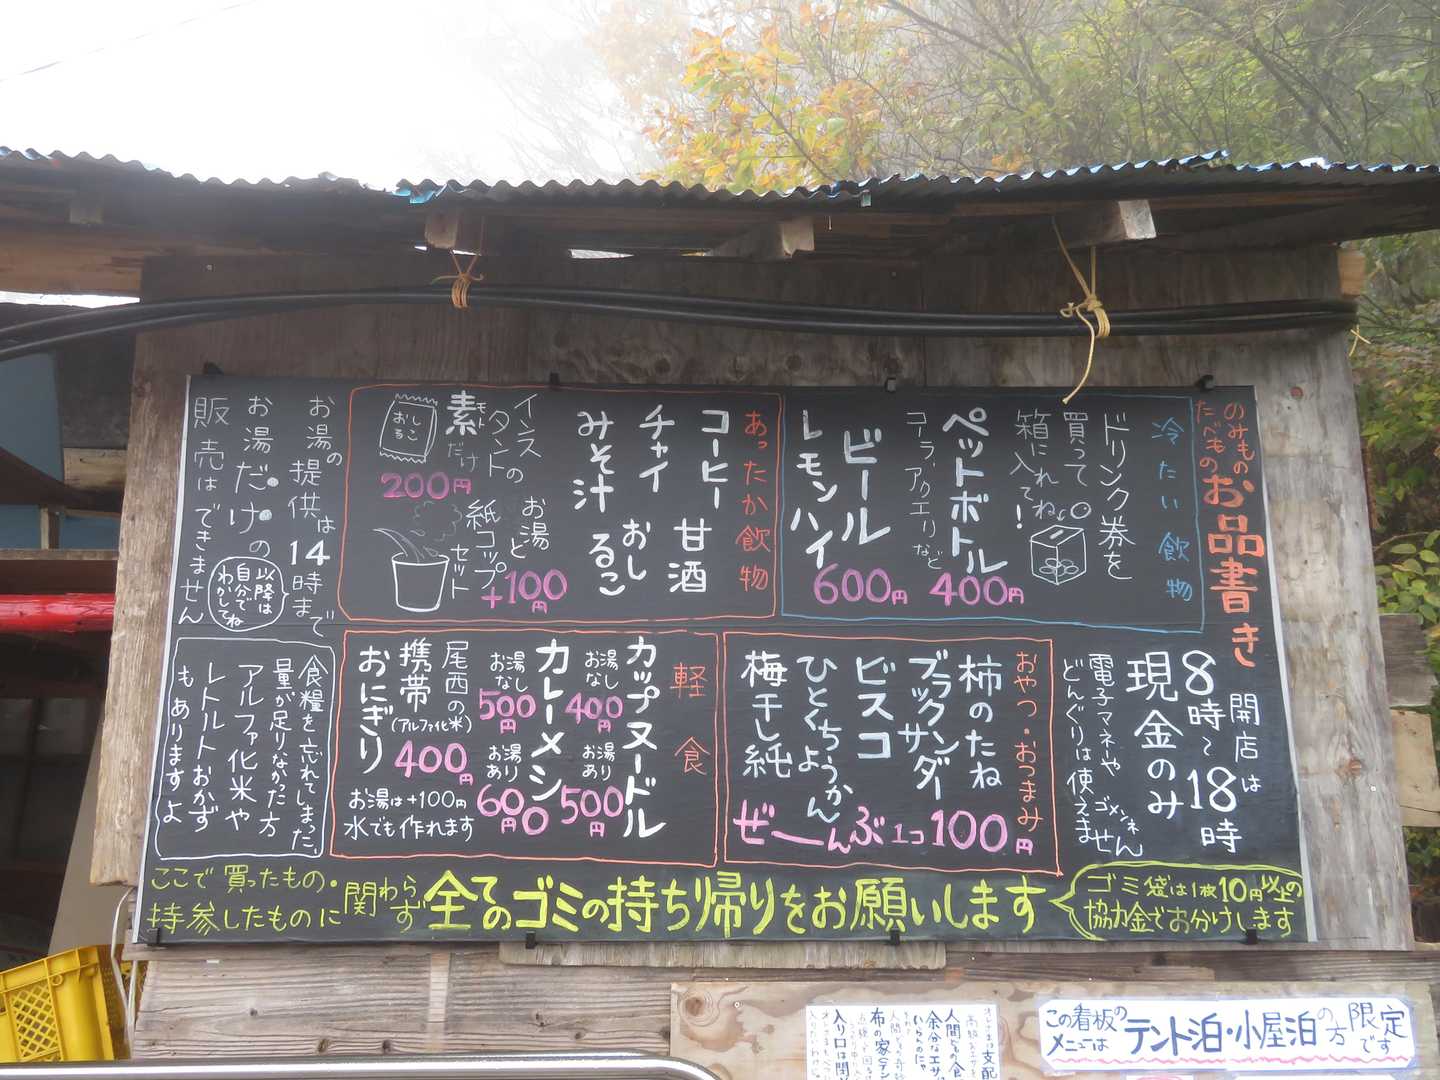 のみもの
たべもの
お品書き
開店は
8時〜18時
現金のみ
電子マネや
どんぐりは使えません
ゴメンネ
冷たい飲物
ドリンク券を
買って
箱に入れてね
!
ペットボトル
コーラ、アクエリなど
400円
ビール
レモンハイ
600円
あったか飲物
コーヒー 甘酒
チャイ おしるこ
みそ汁
インスタントの
素だけ
モト
おしるこ
200円
お湯と
紙コップ
セット
+100円
お湯の提供は14時まで
お湯だけの
販売はできません
以降は
自分で
わかしてね
おやつ・おつまみ
柿のたね
ブラックサンダー
ビスコ
ひとくちようかん
梅干し純
ぜーんぶ1コ100円
軽食
カップヌードル
お湯なし
400円
お湯あり
500円
カレーメシ
お湯なし
500円
お湯あり
600円
尾西の
携帯
(アルファ化米)
おにぎり
400円
お湯は+100円
水でも作れます
食糧を忘れてしまった、
量が足りなかった方
アルファ化米や
レトルトおかず
もありますよ
ここで買ったもの・
持参したものに
関わらず
全てのゴミの持ち帰りをお願いします
ゴミ袋は1枚10円以上の
協力金でお分けします
この看板の
メニューは
テント泊・小屋泊の方
限定です